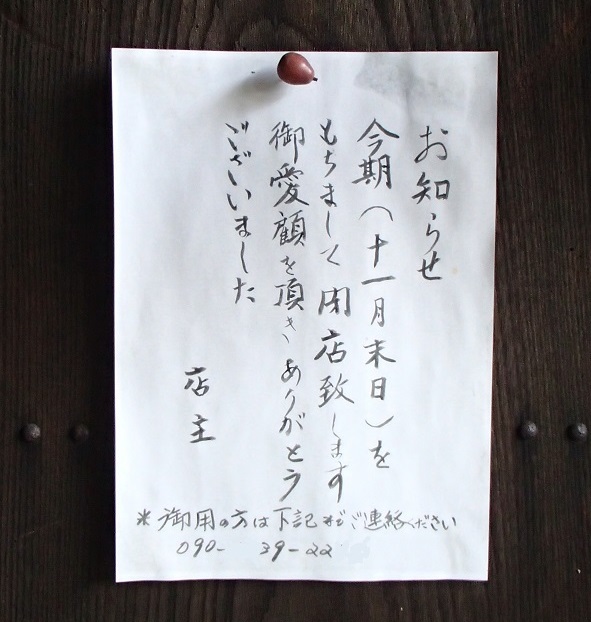 お知らせ
今期(十一月末日)を
もちまして閉店致します
御愛顧を頂きありがとう
ございました
店主
*御用の方は下記までご連絡ください
090-  39-22